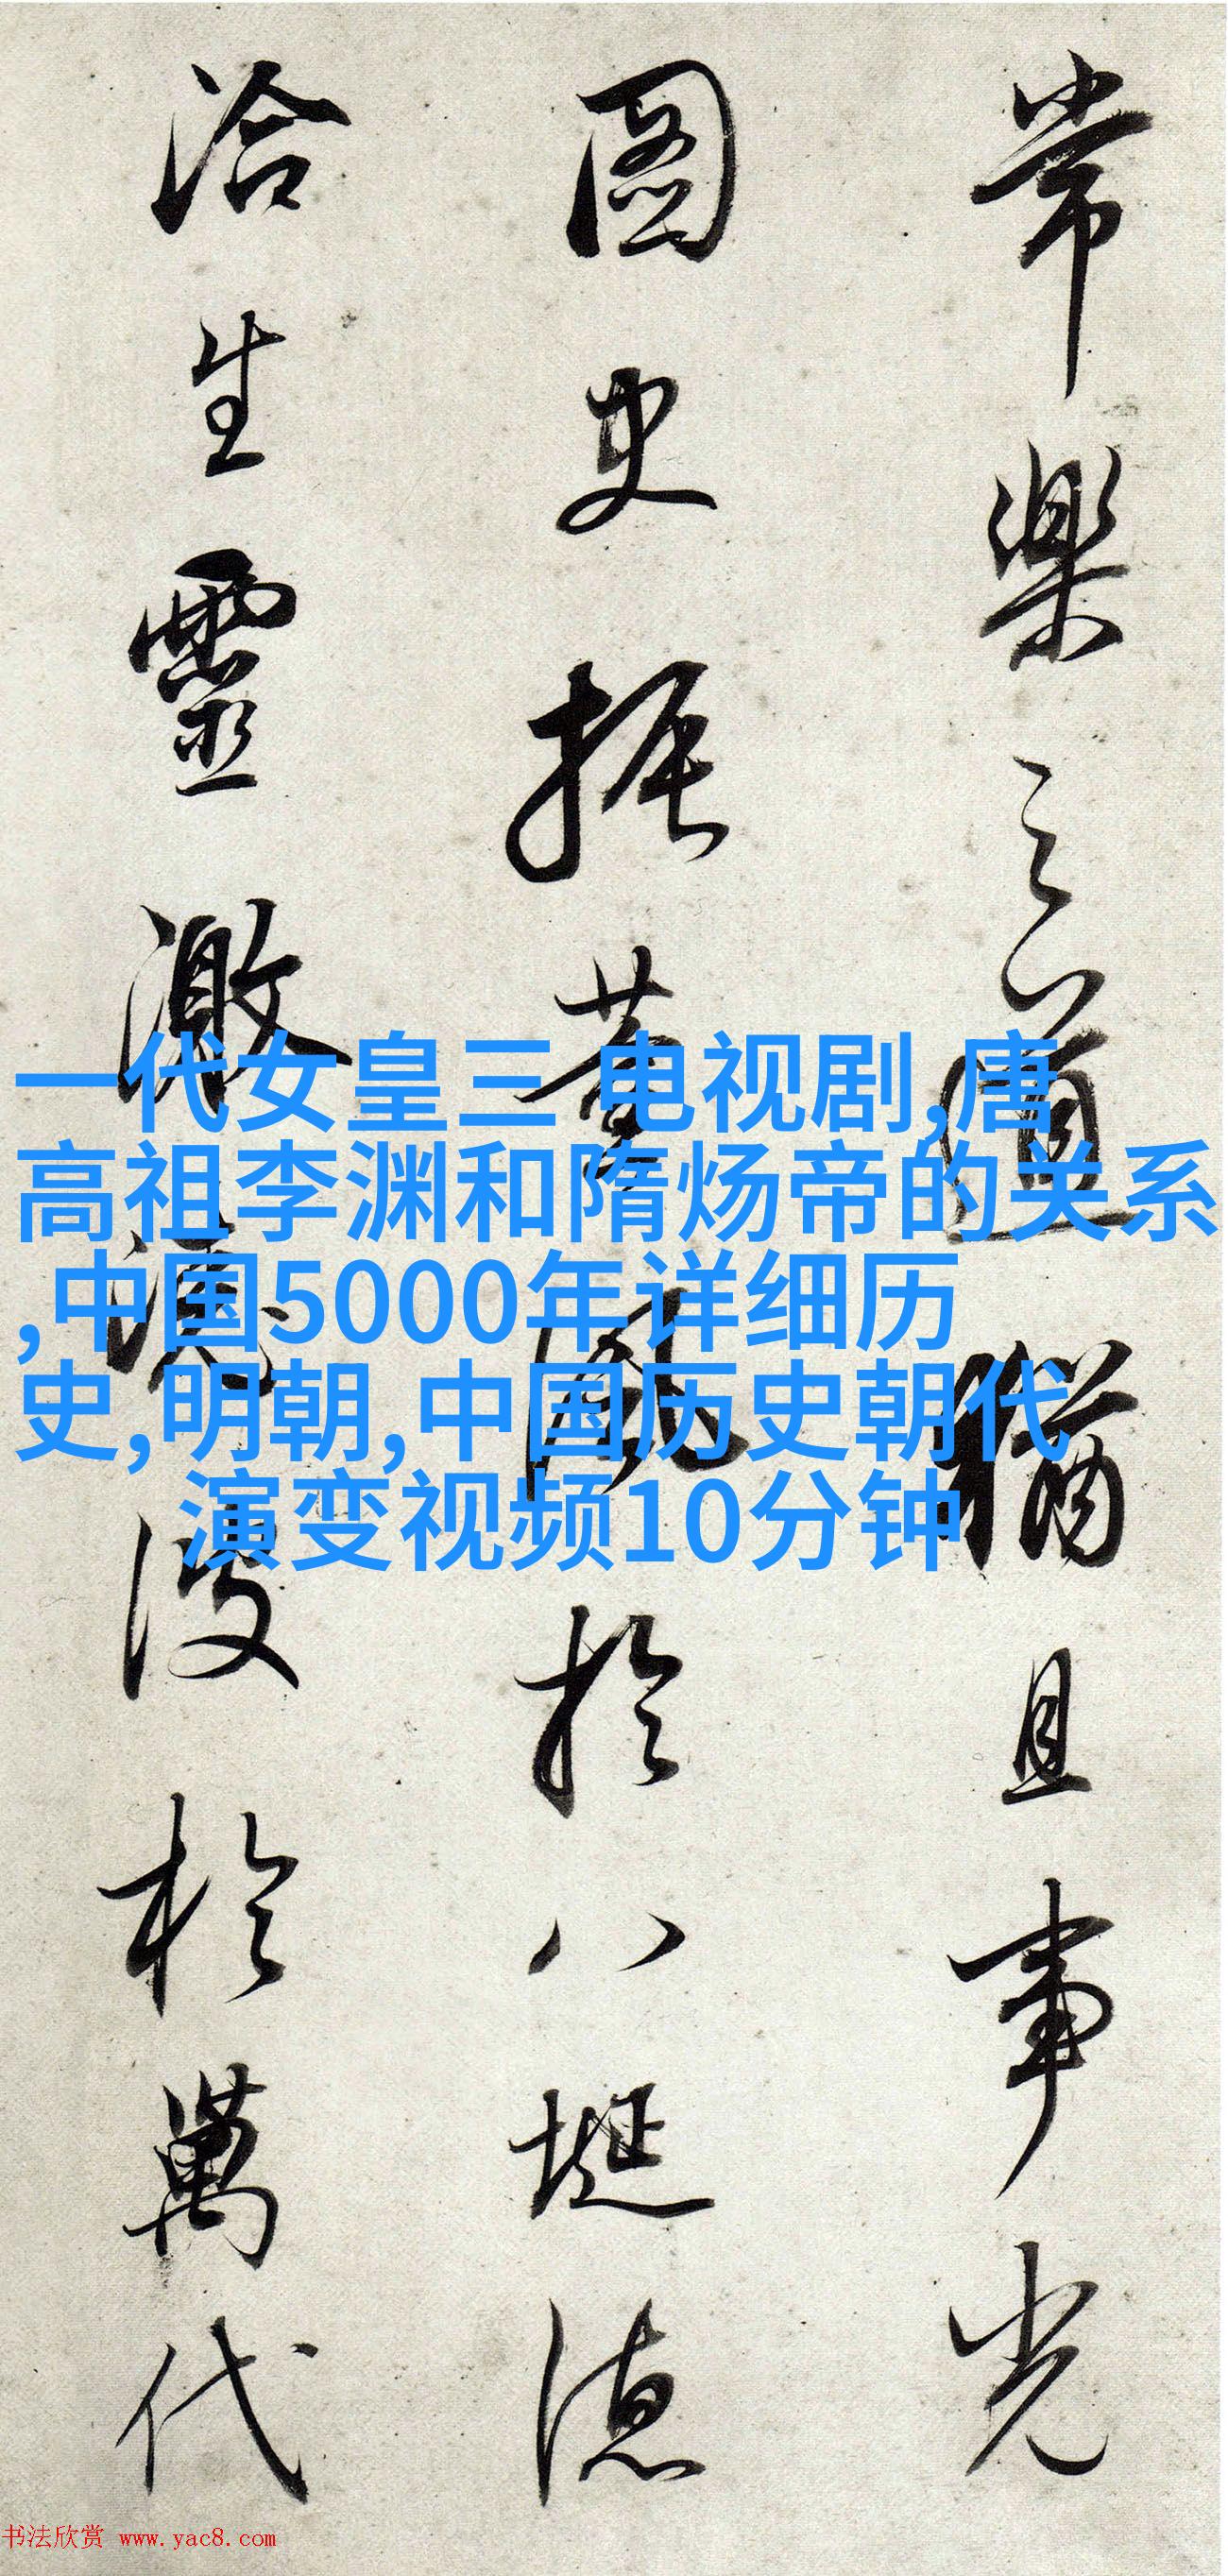 常樂之道猶且事光
圖史振薰風於八埏德
洽生靈激澆波於萬代
一代女皇三 电视剧,唐
高祖李渊和隋炀帝的关系
,中国5000年详细历
史,明朝,中国历史朝代
演变视频10分钟
书法欣赏 www.yac8.com